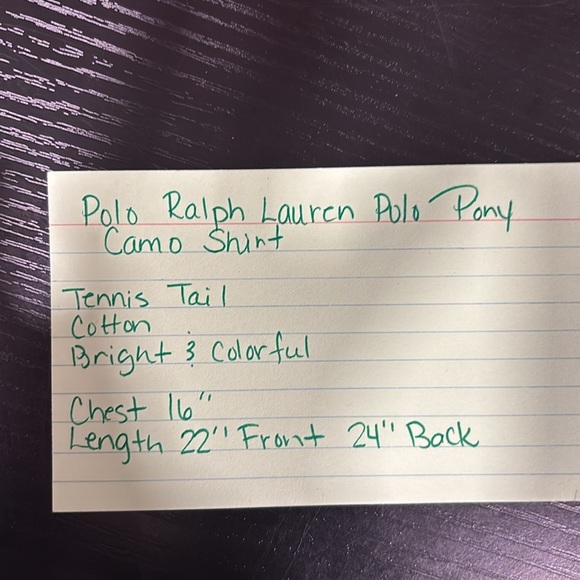 Polo Ralph Lauren Polo Pony
Camo Shirt
Tennis Tail
Cotton
Bright & Colorful
Chest 16"
Length 22" Front 24" Back